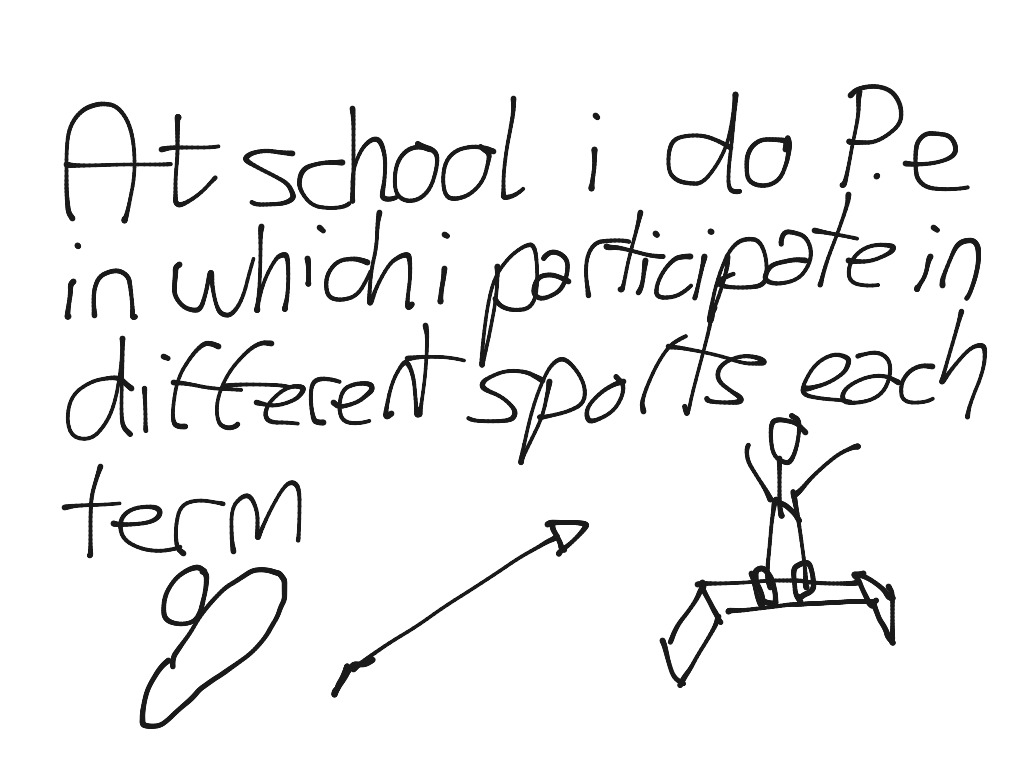 At school i do P.e
in which i participate in
different sports each
term